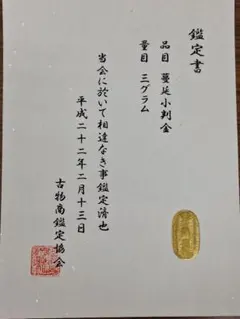 鑑定書
品目 蔓延小判金
量目 三グラム
当会に於いて相違なき事鑑定済也
平成二十二年二月十三日
古物商鑑定協会